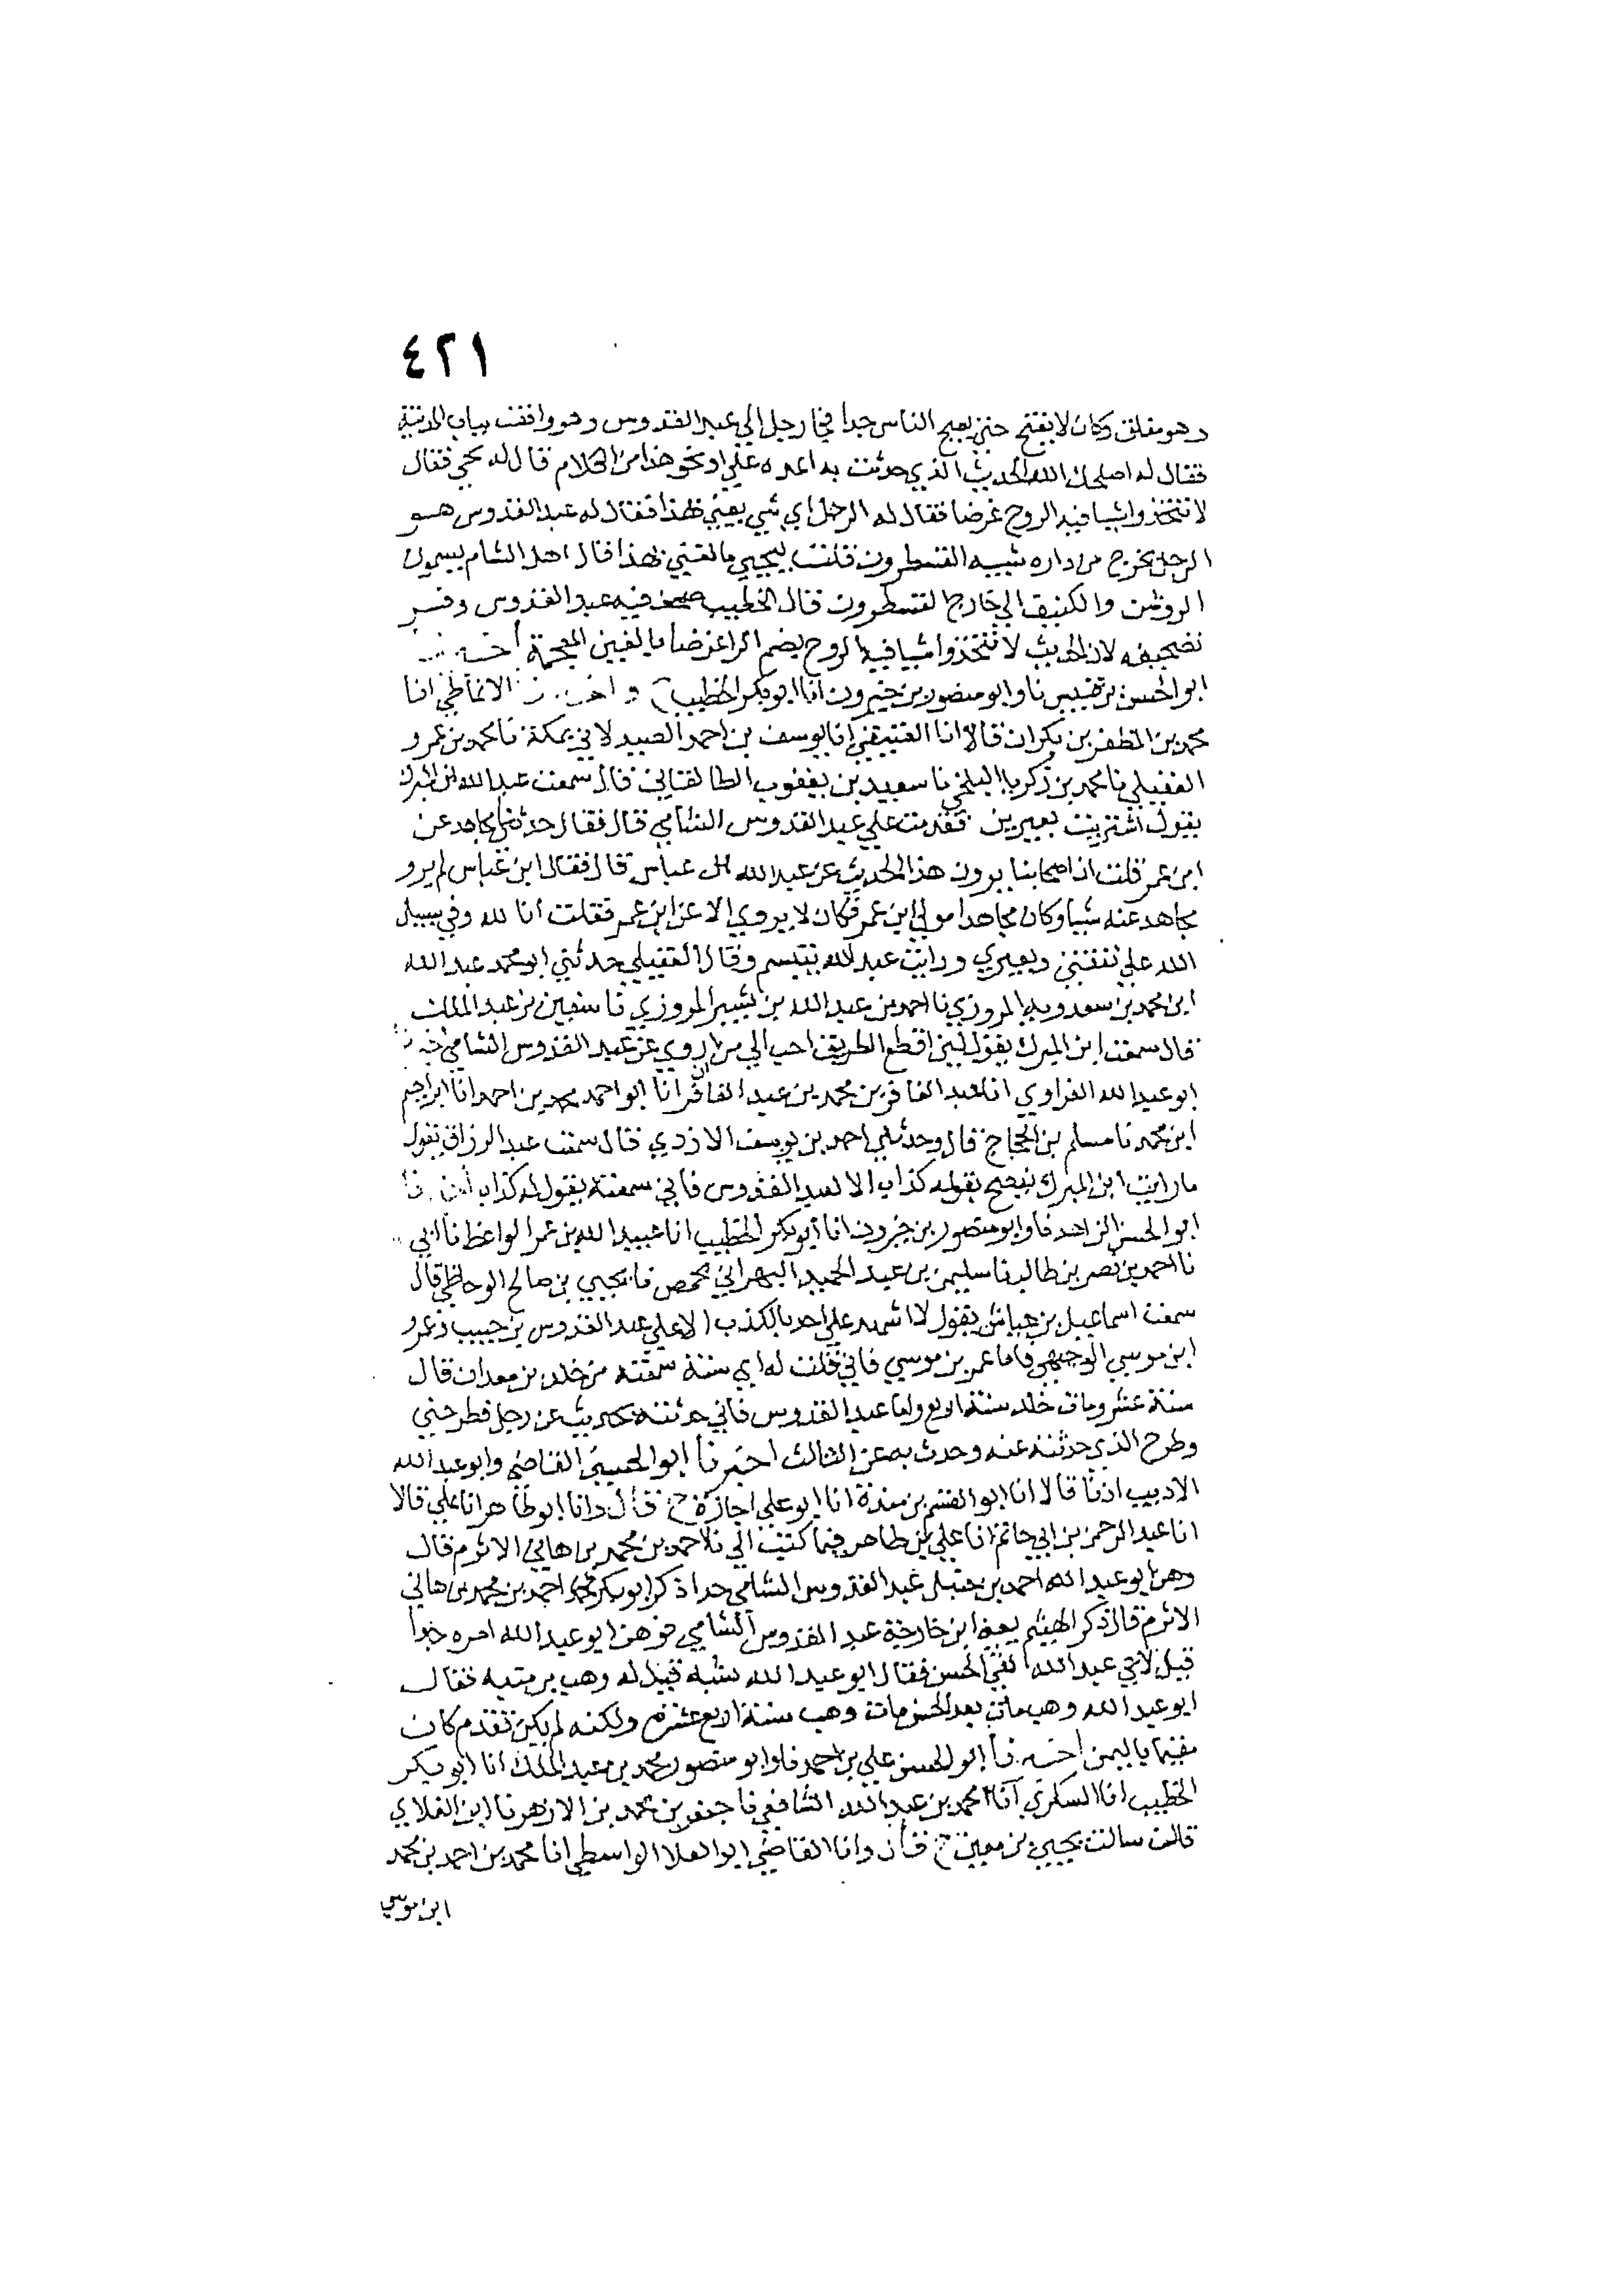 ٤٢١
وهو مغلق وكان لا يفتح حتى يصبح الناس جدا فجا رجل الى عبد القدوس وهو واقف بباب المدينة
فقال له اصلحك الله الحديث الذي حدثت به اعده علي او نحو هذا من الكلام قال له يحيى فقال
لا تتخذوا شيا فيه الروح غرضا فقال له الرجل اي شي يعني بهذا فقال له عبد القدوس هو
الرجل يخرج من داره شبيه القسطرون قلت ليحيى ما يعني بهذا قال اهل الشام يسمون
الروشن والكنيف الى خارج القسطرون قال الخطيب صحف فيه عبد القدوس وفسر
تصحيفه لان الحديث لا تتخذوا شيا فيه الروح بضم الرا غرضا بالغين المعجمة
ابو الحسن بن قبيس نا وابو منصور بن خيرون انا ابو بكر الخطيب ح الانماطي انا
محمد بن المظفر بن بكران قالا انا العتيقي انا يوسف بن احمد الصيدلاني بمكة نا محمد بن عمرو
العقيلي نا محمد بن زكريا البلخي نا سعيد بن يعقوب الطالقاني قال سمعت عبد الله بن المبرك
يقول اشتريت بعيرين فقدمت علي عبد القدوس الشامي قال فقال حدثنا مجاهد عن
ابن عمر قلت ان اصحابنا يروون هذا الحديث عن عبد الله بن عباس قال فقال ابن عباس لم يرو
مجاهد عنه شيا وكان مجاهدا مولى ابن عمر فكان لا يروي الا عن ابن عمر فقلت انا لله وفي سبيل
الله علي نفقتي وبعيري ورايت عبد الله يتبسم وقال العقيلي حدثني ابو محمد عبد الله
ابن محمد بن سعدويه المروزي نا احمد بن عبد الله بن بشير المروزي نا سفين بن عبد الملك
قال سمعت ابن المبرك يقول لين اقطع الطريق احب الي من ان اروي عن عبد القدوس الشامي
ابو عبد الله الفراوي انا عبد الغافر بن محمد بن عبد الغافر انا ابو احمد محمد بن احمد انا ابراهيم
ابن محمد نا مسلم بن الحجاج قال وحدثني احمد بن يوسف الازدي قال سمعت عبد الرزاق يقول
ما رايت ابن المبرك يفصح بقوله كذاب الا لعبد القدوس فاني سمعته يقول له كذاب
ابو الحسن الزاهد نا وابو منصور بن خيرون انا ابو بكر الخطيب انا عبيد الله بن عمر الواعظ نا ابي
نا احمد بن نصر بن طالب نا سليمن بن عبد الحميد البهراني بحمص نا يحيى بن صالح الوحاظي قال
سمعت اسماعيل بن عياش يقول لا اشهد علي احد بالكذب الا علي عبد القدوس بن حبيب وعمر
ابن موسى الوجيهي فاما عمر بن موسى فاني قلت له اي سنة سمعت من خلد بن معدان قال
سنة عشر ومات خلد سنة اربع واما عبد القدوس فاني حدثته بحديث عن رجل فطرحني
وطرح الذي حدثته عنه وحدث به عن الثالث اخبرنا ابو الحسين القاضي وابو عبد الله
الاديب اذنا قالا انا ابو القسم بن مندة انا ابو علي اجازة ح قال وانا ابو طاهر انا علي قالا
انا عبد الرحمن بن ابي حاتم انا علي بن طاهر فيما كتب الي نا احمد بن محمد بن هاني الاثرم قال
وهن ابو عبد الله احمد بن حنبل عبد القدوس الشامي جدا ذكر ابو بكر احمد بن محمد بن هاني
الاثرم قال ذكر الهيثم يعني ابن خارجة عبد القدوس الشامي فوهن ابو عبد الله امره جدا
قيل لابي عبد الله لقي الحسن فقال ابو عبد الله شبه قيل له وهب بن منبه فقال
ابو عبد الله وهب مات بعد الحسن مات وهب سنة اربع عشرة ولكنه لم يكن تقدم كان
مقيما باليمن نا ابو الحسن علي بن احمد نا وابو منصور محمد بن عبد الملك انا ابو بكر
الخطيب انا السكري انا محمد بن عبد الله الشافعي نا جعفر بن محمد بن الازهر نا ابن الغلابي
قال سالت يحيى بن معين ح قال وانا القاضي ابو العلا الواسطي انا محمد بن احمد بن محمد
ابن موسى